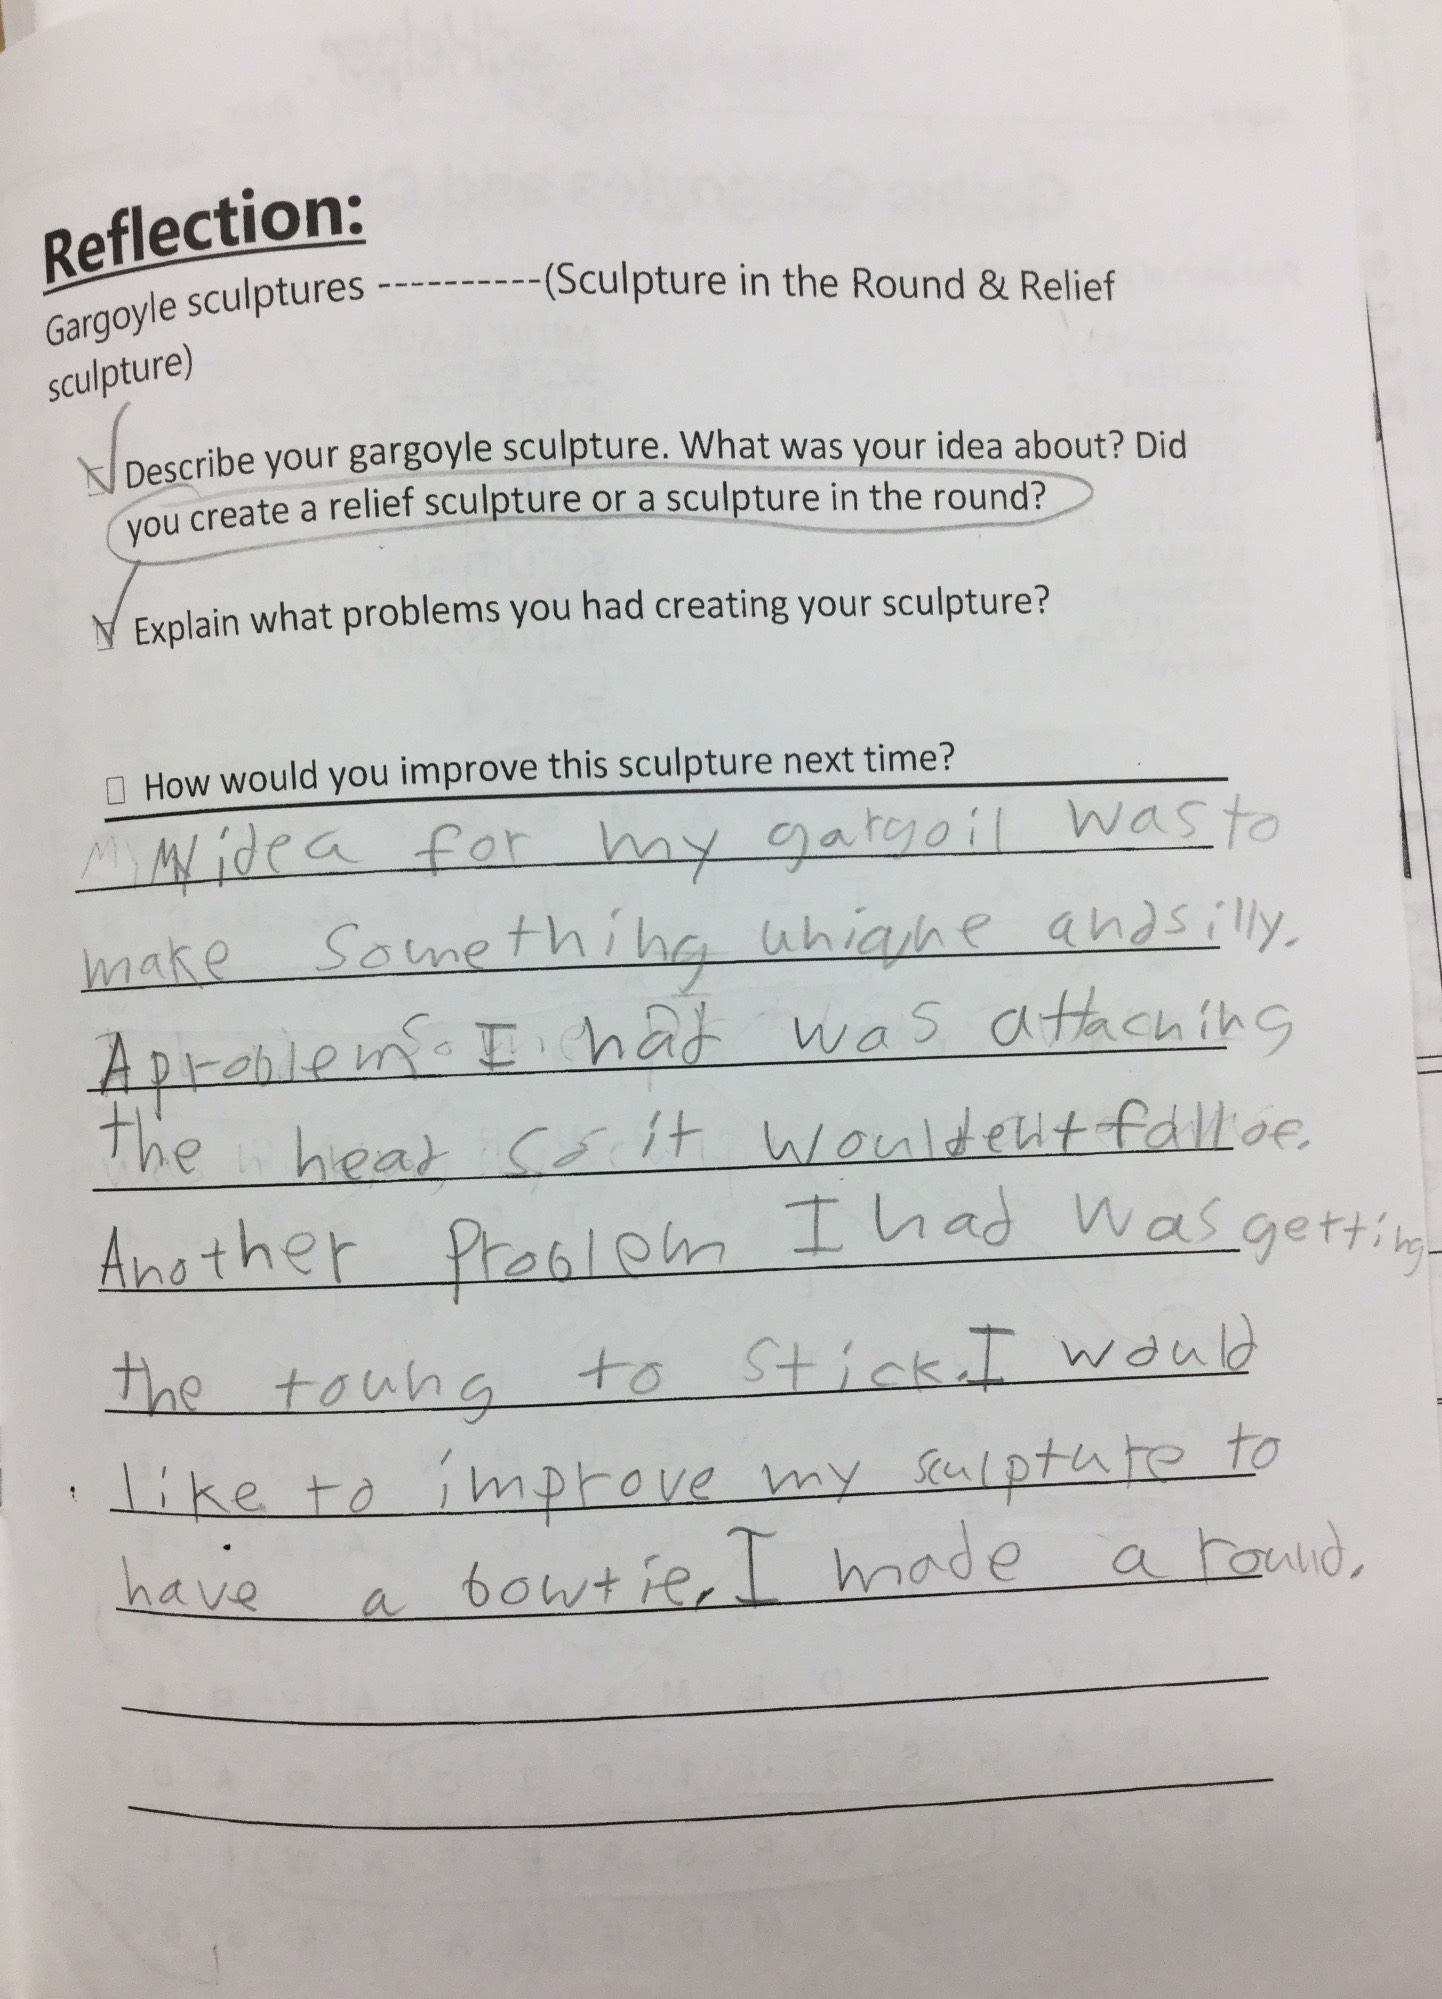 Reflection:
Gargoyle sculptures ----------(Sculpture in the Round & Relief
sculpture)
Describe your gargoyle sculpture. What was your idea about? Did
you create a relief sculpture or a sculpture in the round?
Explain what problems you had creating your sculpture?
How would you improve this sculpture next time?
My idea for my gargoil was to
make something uniqhe and silly.
A problems I had was attaching
the head so it would
Another problem I had was getting
the toung to stick. I would
like to improve my sculpture to
have a bowtie. I made a round.